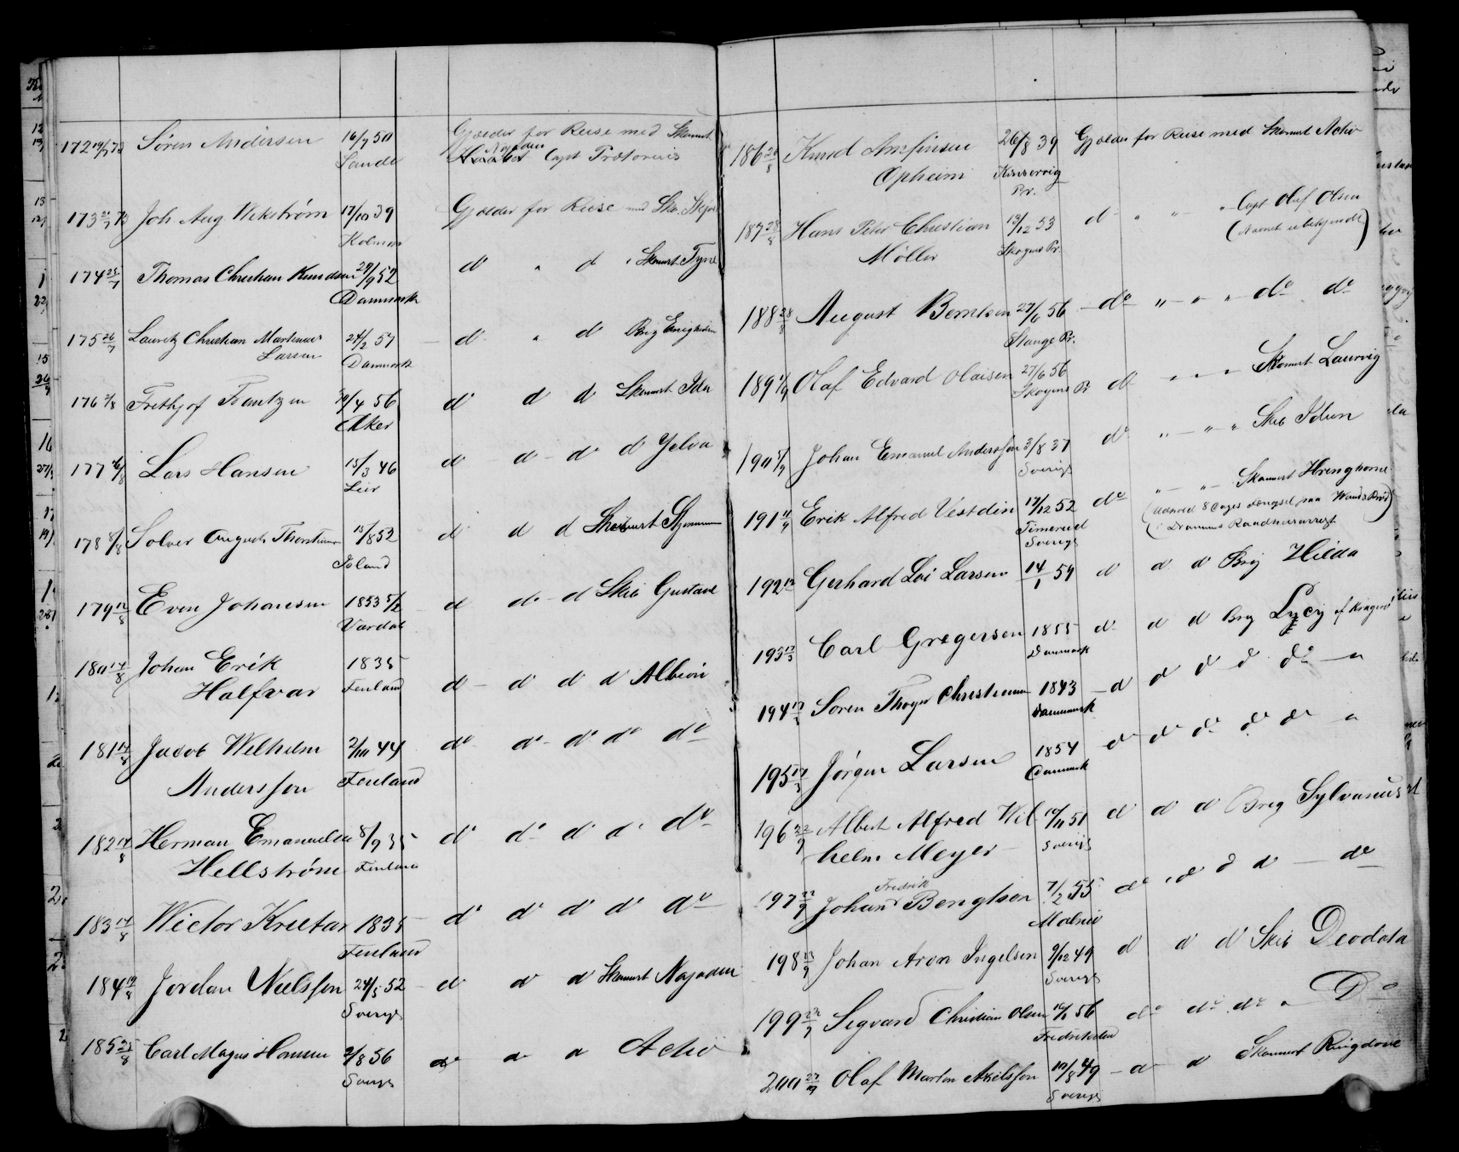 172 19/7 73 Søren Andersen 16/9 50 Gjælder for Reise med Skonnert
Sande Najaden Capt Prætorius
173 21/7 73 Joh Aug Wikstrøm 17/10 39 Gjælder for Reise med
Kalmar
174 25/7 Thomas Christian Knudsen 29/9 52 do " do " Skonnert
Danmark
175 26/7 Lauritz Christian Martinus 24/2 57 do " do Brig Enigheden
Larsen Danmark
176 Frethjof Frantzen 20/4 56 do do do Skonnert Ida
Aker
177 Lars Hansen 15/3 46 do do do do Yelva
Lier
178 8/8 August 15/8 52 do do do Skonnert
Island
179 12/8 Even Johansen 1853 5/2 do do do Skib Gustave
Vardal
180 14/8 Johan Erik 1835 do do do do Albion
Halfvar Finland
181 14/8 Jacob Wilhelm 2/10 44 do do do do do
Andersson Finland
182 14/8 Herman Emanuel 8/9 35 do do do do do
Hellstrøm Finland
183 14/8 Wictor 1835 do do do do do
Finland
184 19/8 Jordan Nielsson 24/5 52 do do do Skonnert Najaden
Sverige
185 25/8 Carl Magnus Hansen 2/8 56 do do do Activ
Sverige
186 26/8 Knud Amfinsen 26/8 39 Gjælder for Reise med Skonnert Activ
Opheim Kinservig
Pr.
187 28/8 Hans Peter Christian 13/12 53 do " " " Capt Olaf Olsen
Møller Skoger Pr. (Navnet ubekjendt)
188 28/8 August Berntsen 27/6 56 do " " " do do
Stange Pr.
189 1/9 Olaf Edvard Olaisen 27/6 56 do " " " Skonnert Laurvig
Skogens Pr
190 5/9 Johan Emanuel Andersson 3/8 37 do " " " Skib Idun
Sverige
191 11/9 Erik Alfred Vestdin 17/12 52 do " " Skonnert
(Udstod 8 Dages Fængsel paa Vand & Brød
i Drammens Raadhusarrest)
Sverige
192 Gerhard Larsen 14/1 59 do do do Brig Hilda
193 Carl Gregersen 1855 do do do Brig Lucy af Kragerø
Danmark
194 Søren Thøger Christensen 1843 do do do do do "
Danmark
195 Jørgen Larsen 1854 do do do do do "
Danmark
196 22/9 Albert Alfred Wil 51 do do do Brig Sylvanus
helm Meyer Sverige
197 22/9 Johan Fredrik Bengtson 7/2 55 do do do do do
Malmø
198 23/9 Johan Aron Ingelsen 9/12 49 do do do Skib Deodata
Sverige
199 Segvard Christian Olsen 56 do do do " Do
Fredrikshald
200 27/9 Olaf Marton Akselsson 10/8 49 do do Skonnert Ringdove
Sverige